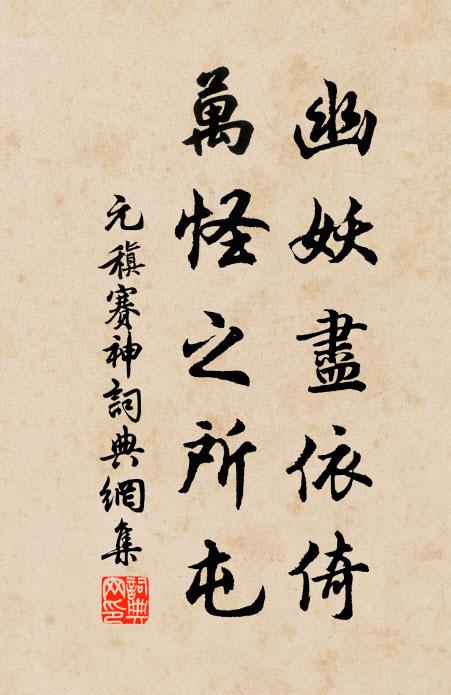 幽妖盡依倚
萬怪之所屯
元稹賽神詞典網集
詞典網印